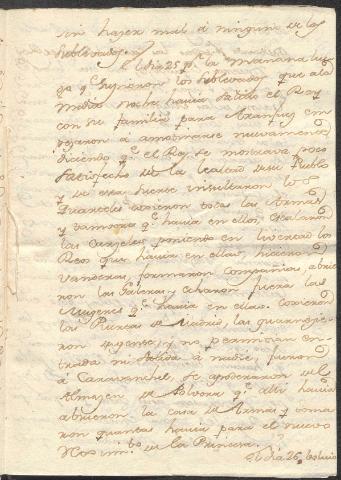 sin hazer mal á ninguno de los
sublevados.
El dia 25 p.r la mañana lue
go q.e supieron los sublevados que a la
media noche havia salido el Rey
con su familia para Aranjuez em
pezaron á amotinarse nuevamente
diciendo q.e el Rey se mostrava poco
satisfecho de la lealtad de su Pueblo
y de esta suerte insultaron los
Quarteles cojieron todas las Armas
y tambores q.e havia en ellos, escalaron
las Carzeles poniendo en livertad los
Reos que havia en ellas, hicieron
vanderas, formaron compañias, abrie
ron las Galeras y echaron fuera las
Mugeres q.e havia en ellas. Cojieron
las Puertas de Madrid, las guarnezie
ron de gente, y no permitian en
trada ni salida á nadie, fueron
á Caravanchel, se apoderaron del
Almazen de Polvora q.e alli havia
abrieron la casa de Armas y toma
ron quantas havia para el nuevo
de la Princesa.
El dia 26 bolvio